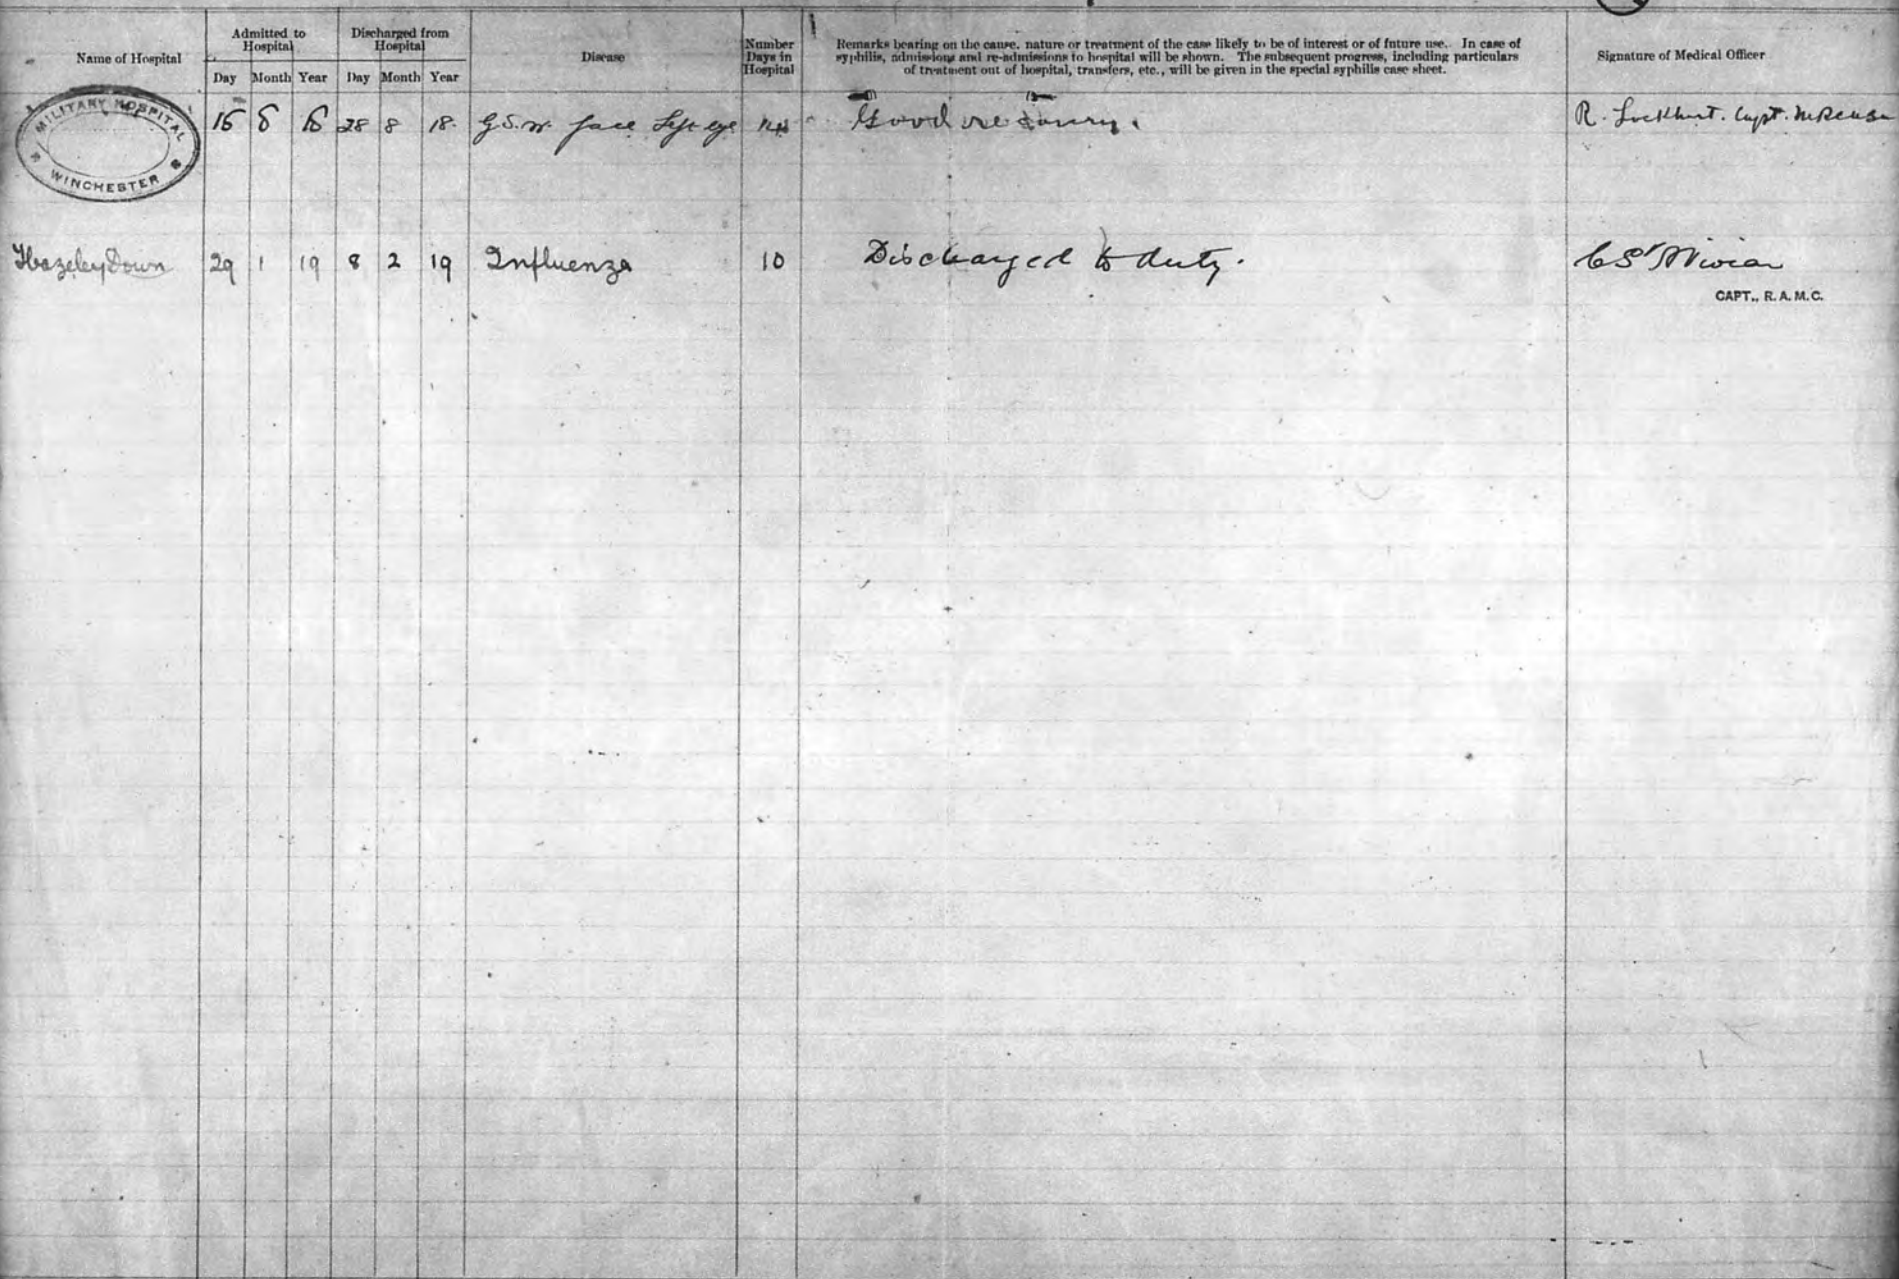 Name of Hospital
Admitted to Hospital
Discharged from Hospital
Disease
Number Days in Hospital
Remarks bearing on the cause, nature or treatment of the case likely to be of interest or of future use. In case of
syphilis, admissions and re-admissions to hospital will be shown. The subsequent progress, including particulars
of treatment out of hospital, transfers, etc., will be given in the special syphilis case sheet.
Signature of Medical Officer
Day Month Year Day Month Year
MILITARY HOSPITAL WINCHESTER
8 28 8 18. G.S.W. face Left eye Good recovery. R. Lockhart. Capt.
Hazeley Down 29 1 19 8 2 19 Influenza 10 Discharged to duty. Vivian
CAPT., R.A.M.C.